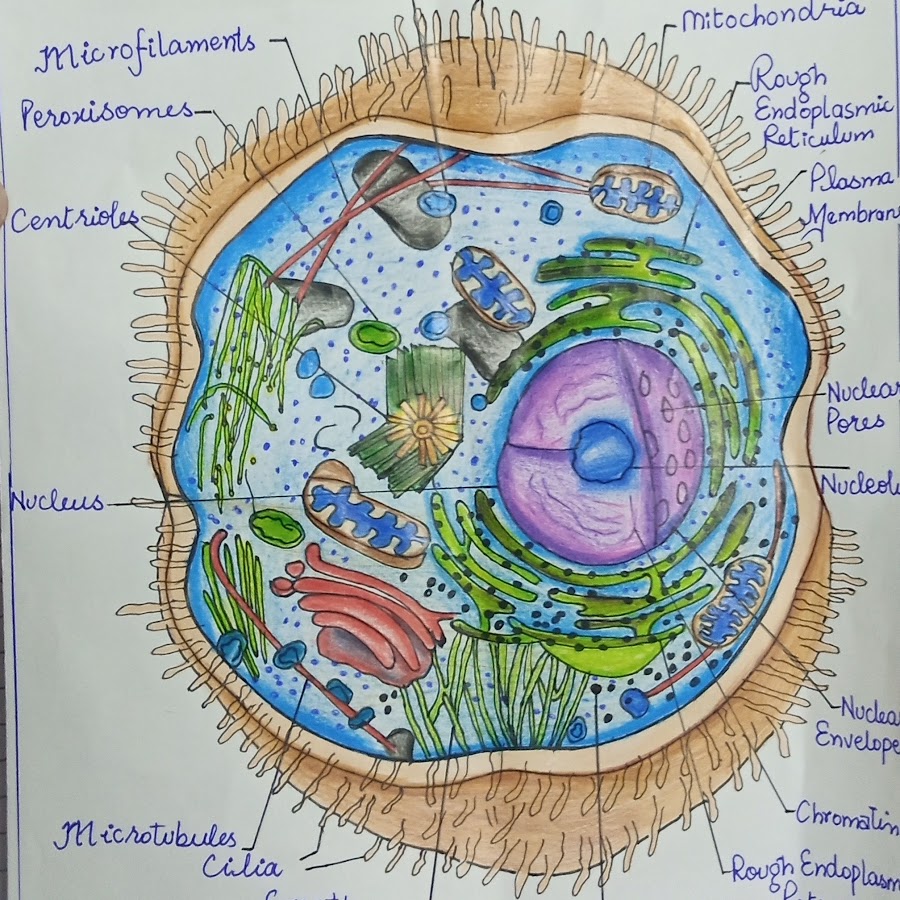 Microfilaments
Peroxisomes
Centrioles
Nucleus
Microtubules
Cilia
Mitochondria
Rough
Endoplasmic
Reticulum
Plasma
Membran
Nuclear
Pores
Nucleol
Nuclea
Envelope
Chromatin
Rough Endoplasm